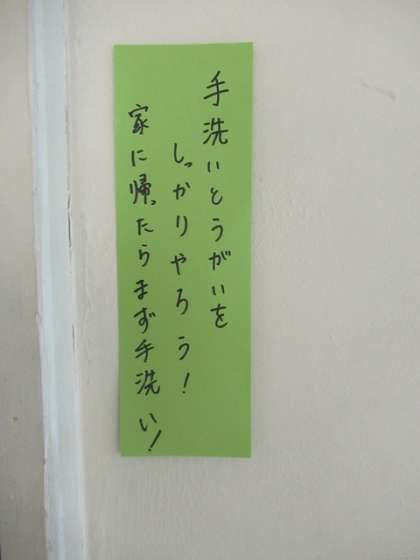 手洗いとうがいを
しっかりやろう!
家に帰ったらまず手洗い!